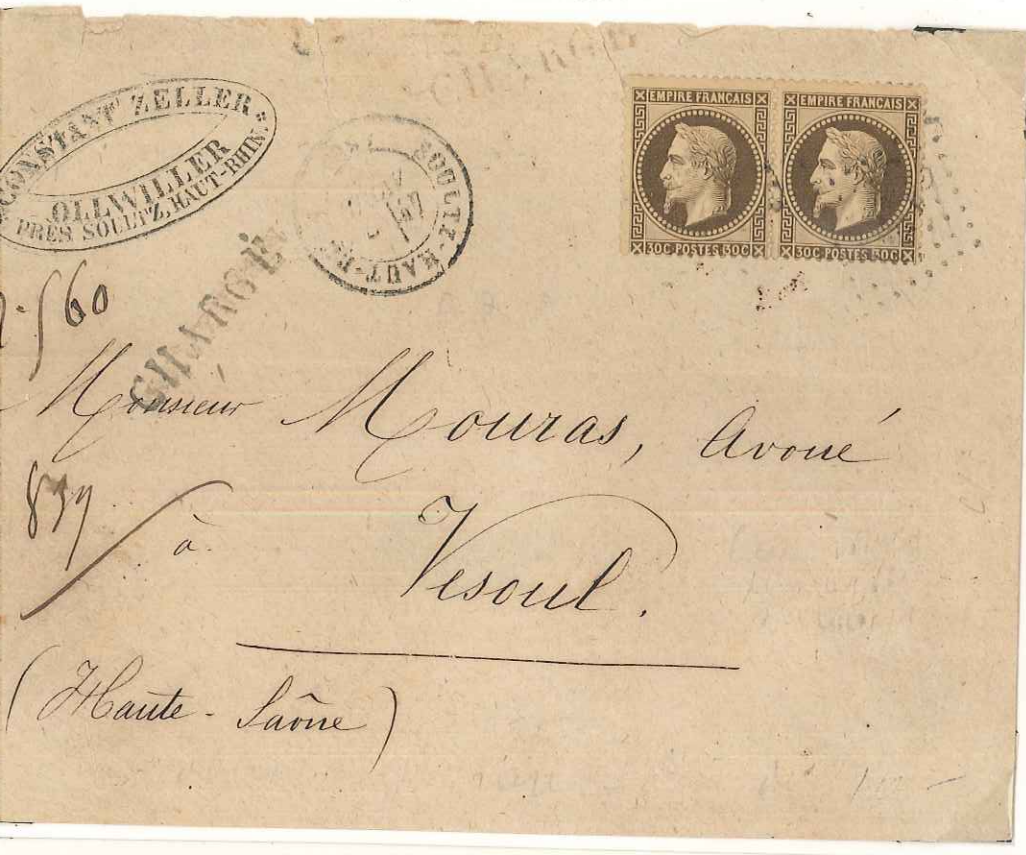 CONSTANT ZELLER
OLLWILLER
PRÈS SOULTZ, HAUT-RHIN.
CHARGÉ
SOULTZ-HAUT-RHIN
EMPIRE FRANÇAIS
30C·POSTES·30C
EMPIRE FRANÇAIS
30C·POSTES·30C
CHARGÉ
560
Monsieur Mouras, Avoué
839
à Vesoul.
(Haute-Saône)